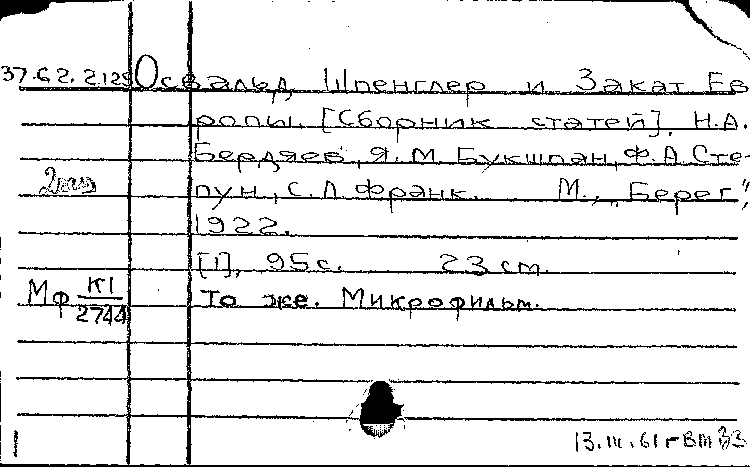 37.62.2.125 Освальд Шпенглер и Закат Ев
ропы. [Сборник статей]. Н.А.
Бердяев, Я.М. Букшпан, Ф.А. Сте-
пун, С.Л. Франк. М., „Берег",
1922.
[1], 95 с. 23 см.
Мф К1/2744 То же. Микрофильм.
13.III.61 г